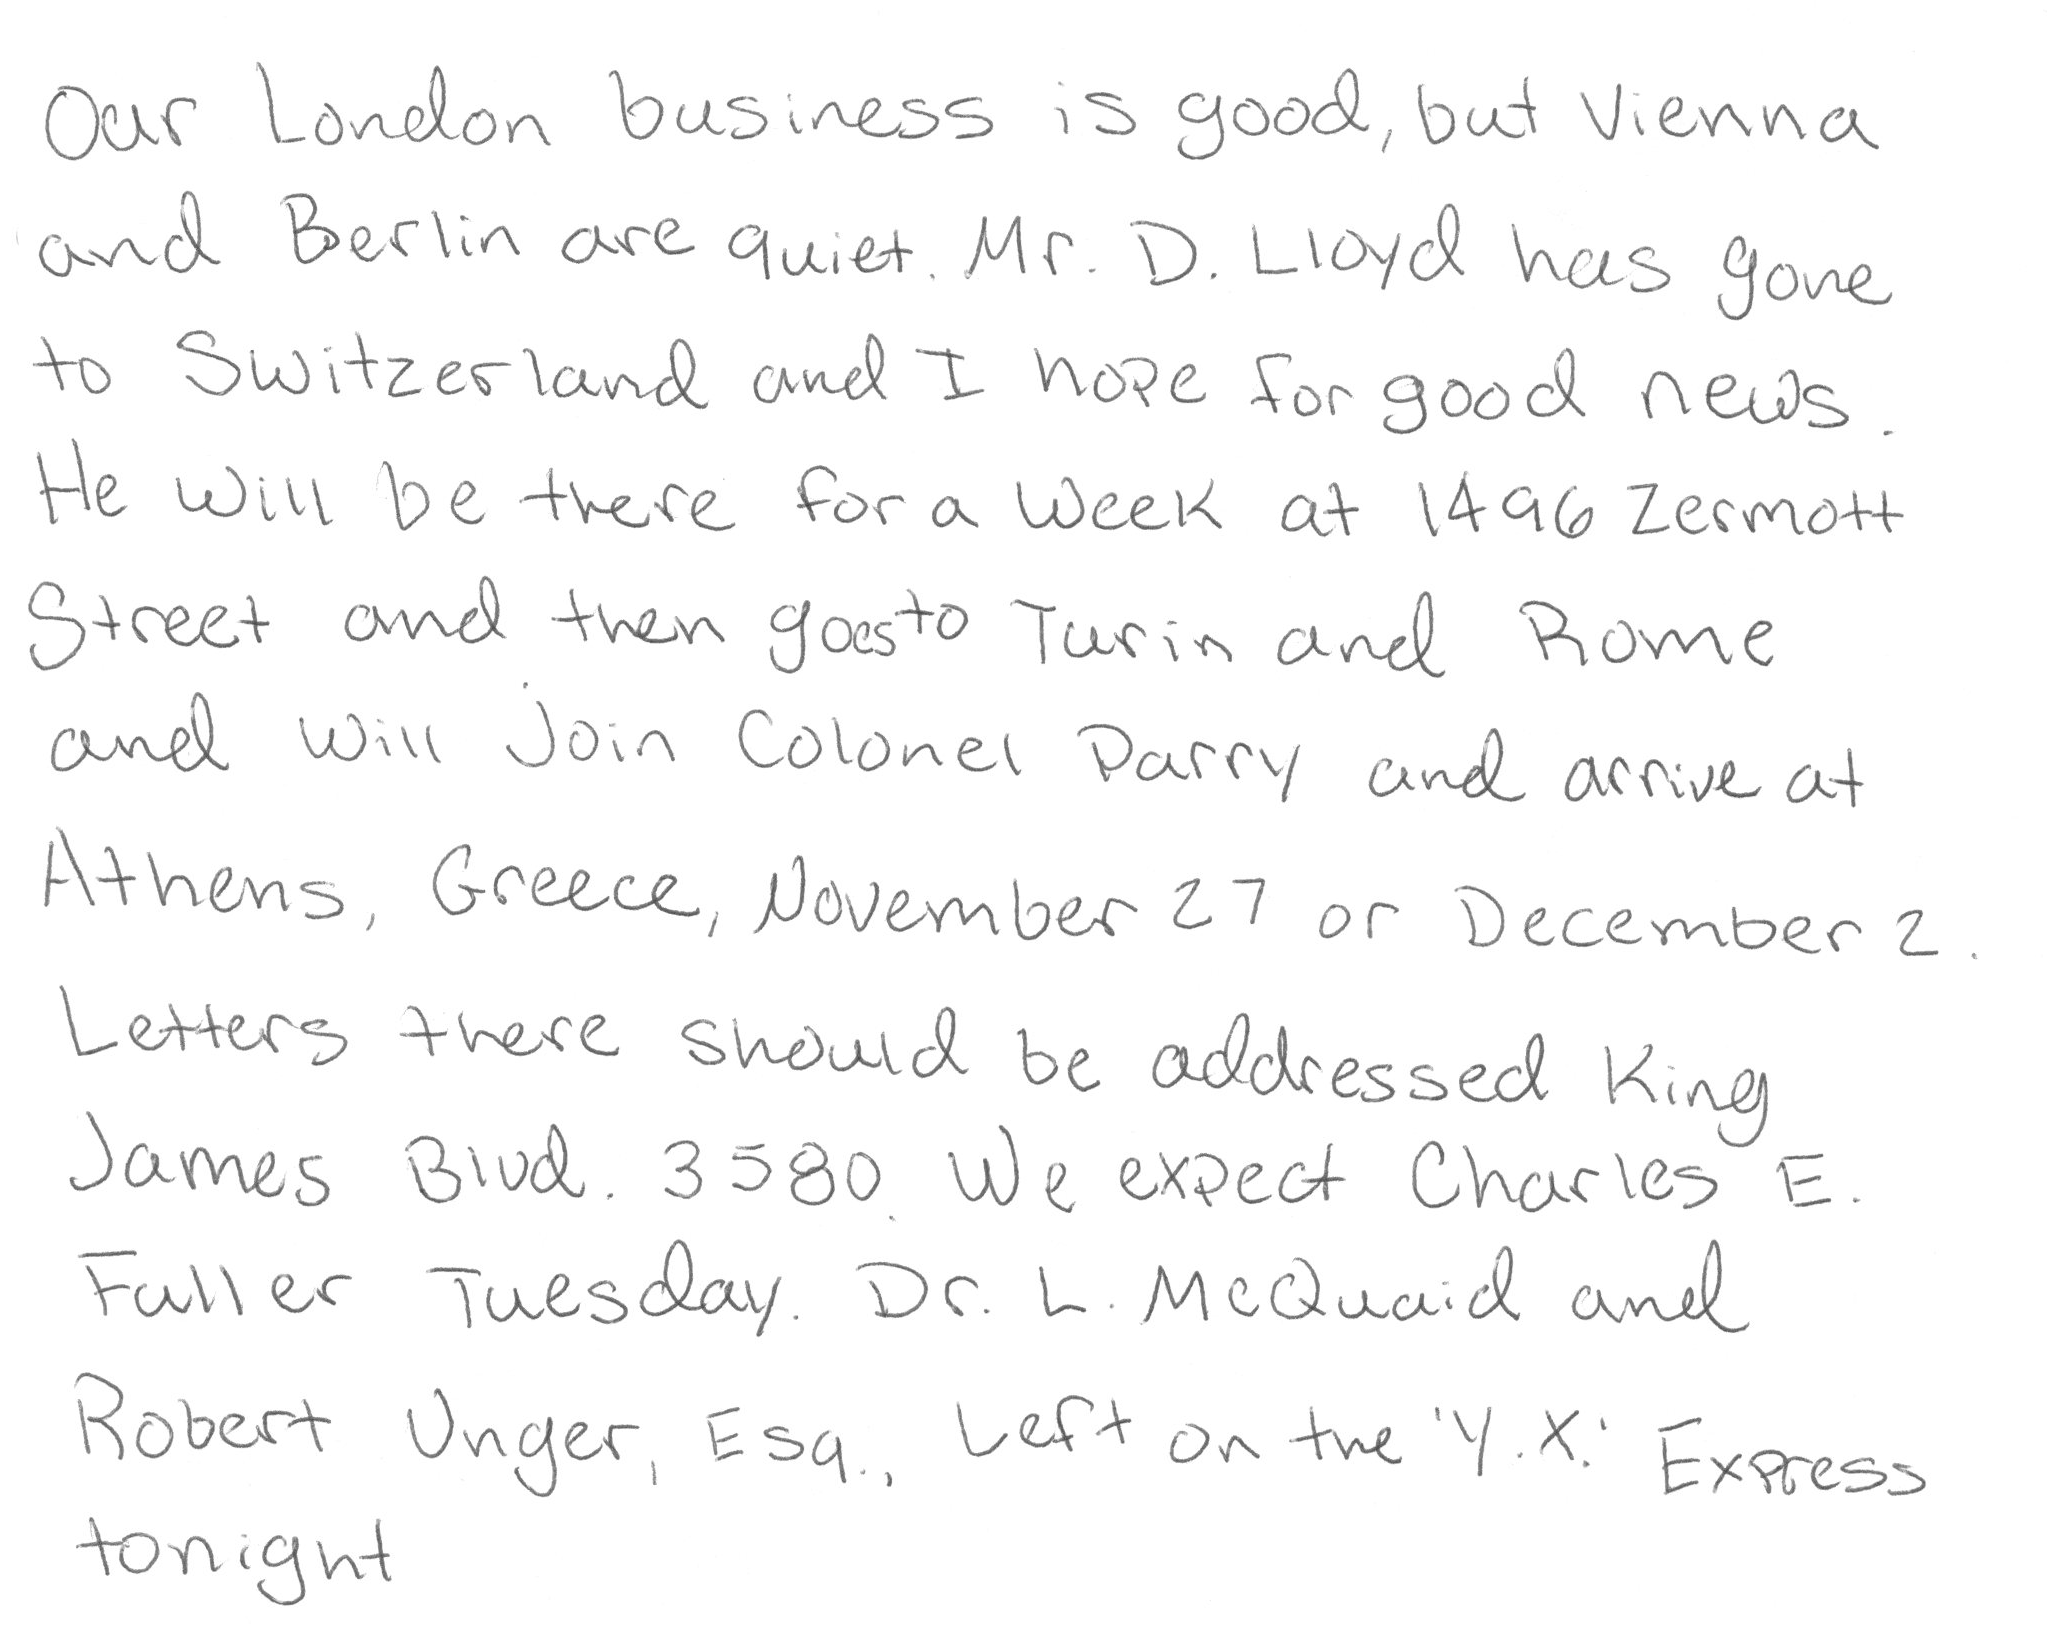 Our London business is good, but Vienna
and Berlin are quiet. Mr. D. Lloyd has gone
to Switzerland and I hope for good news.
He will be there for a week at 1496 Zermott
Street and then goes to Turin and Rome
and will join Colonel Parry and arrive at
Athens, Greece, November 27 or December 2.
Letters there should be addressed King
James Blvd. 3580. We expect Charles E.
Fuller Tuesday. Dr. L. McQuaid and
Robert Unger, Esq., Left on the 'Y.X.' Express
tonight